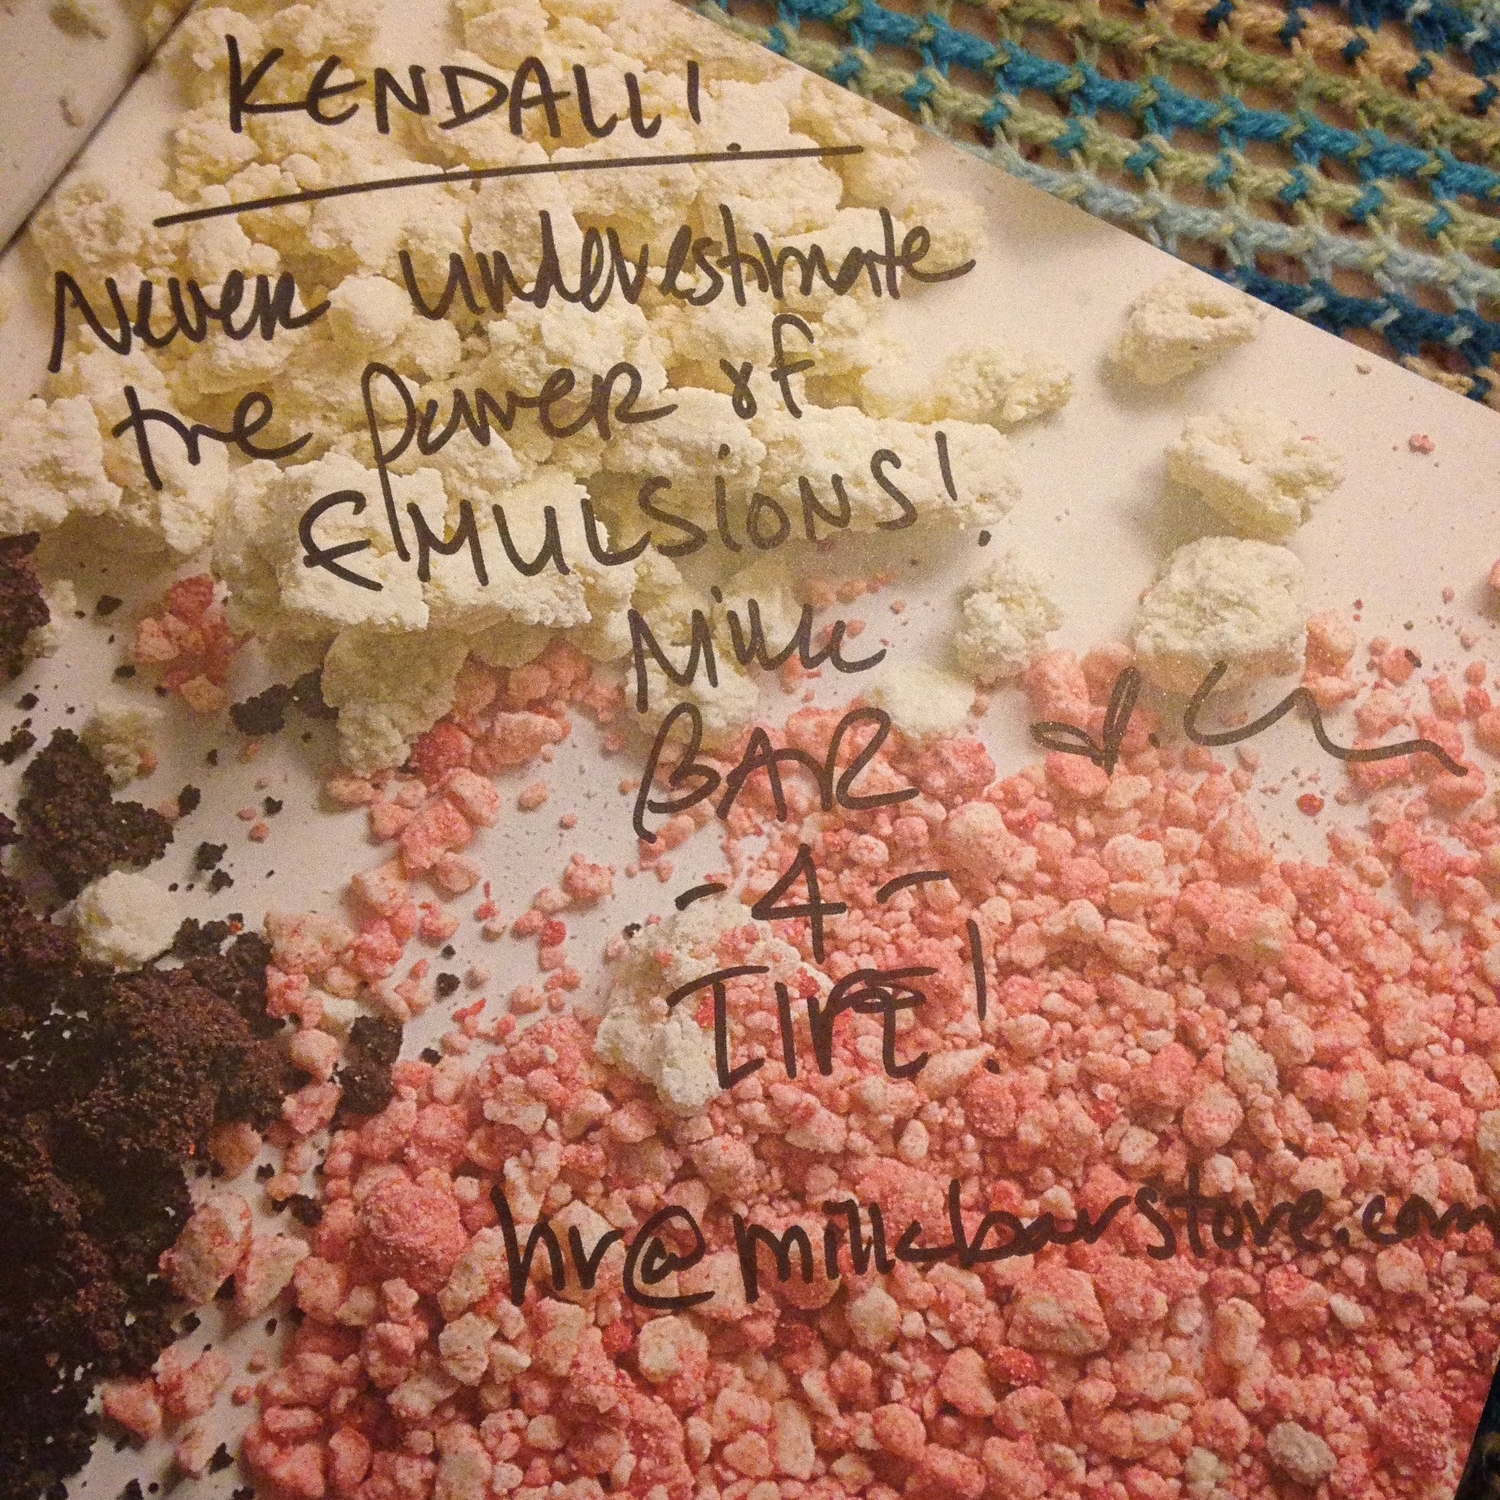 KENDALL!
Never underestimate
the power of
EMULSIONS!
Milk
BAR
-4-
LIFE!
hr@milkbarstore.com